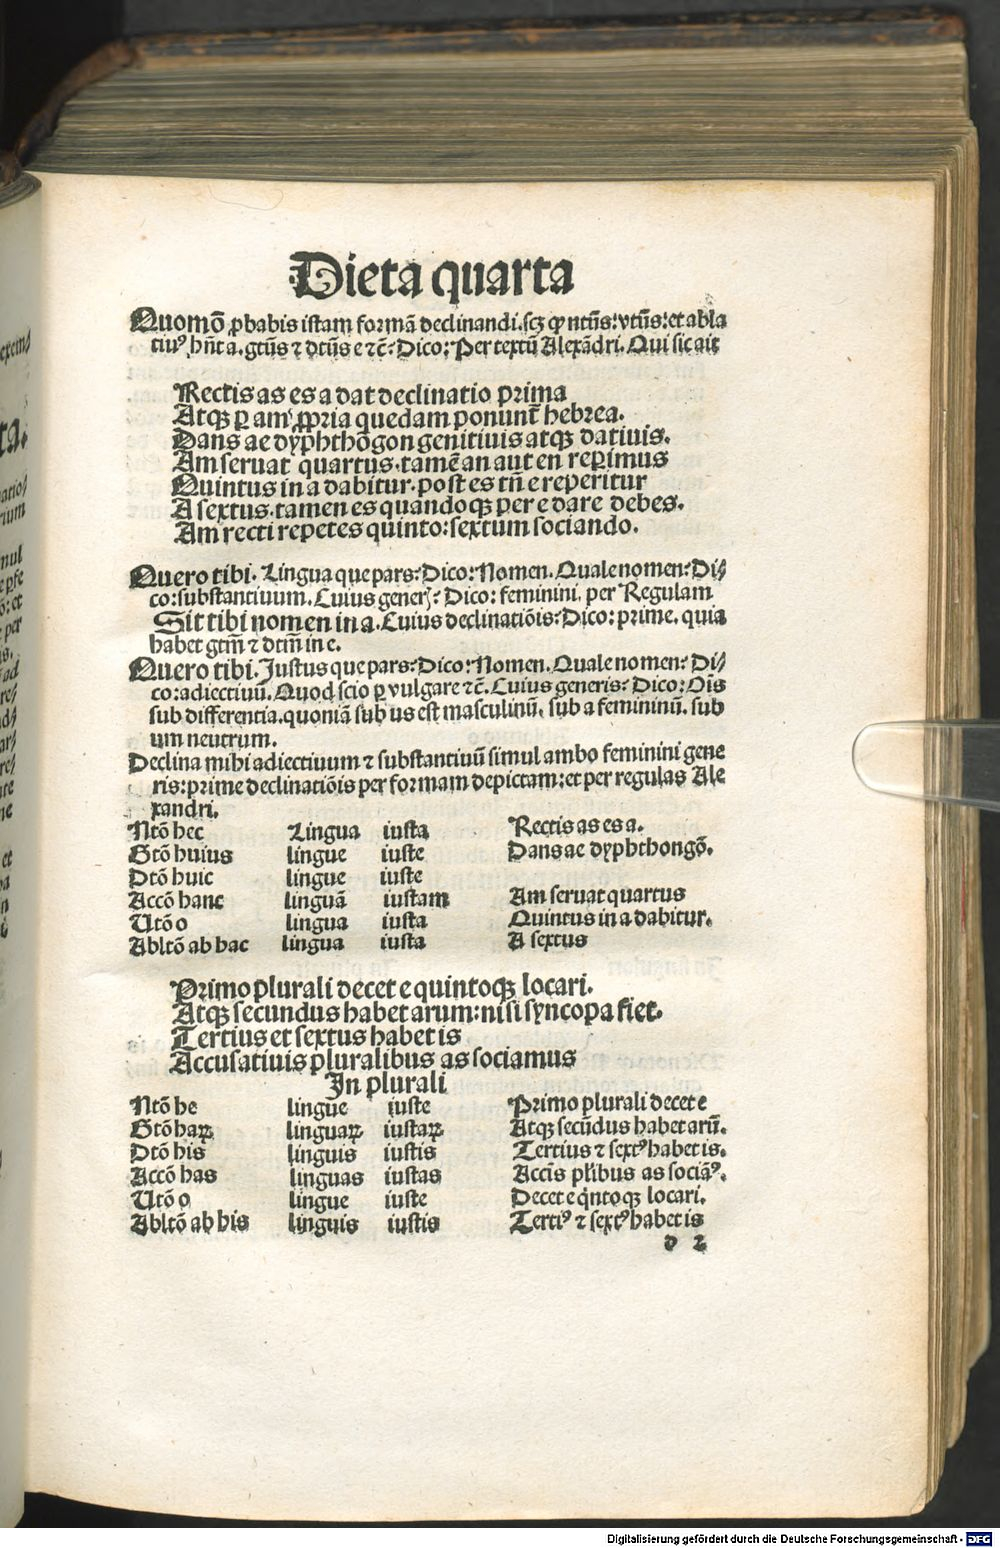 Dieta quarta
Quomõ ꝓbabis istam formã declinandi.scꝫ ꝙ ntũs:vtũs:et abla
tiuꝰ hñt a.gtũs ⁊ dtũs e ⁊c̃: Dico: Per textũ Alexãdri. Qui sic ait
Rectis as es a dat declinatio prima
Atqꝫ ꝑ am ꝓpria quedam ponunt̃ hebrea.
Dans ae dyphthõgon genitiuis atqꝫ datiuis.
Am seruat quartus.tamẽ an aut en reꝑimus
Quintus in a dabitur.post es tñ e reperitur
A sextus.tamen es quandoqꝫ per e dare debes.
Am recti repetes quinto:sextum sociando.
Quero tibi. Lingua que pars: Dico: Nomen. Quale nomen: Di⸗
co:substantiuum. Cuius gener̃: Dico: feminini. per Regulam
Sit tibi nomen in a. Cuius declinatiõis: Dico: prime. quia
habet gtm̃ ⁊ dtm̃ in e.
Quero tibi. Justus que pars: Dico: Nomen. Quale nomen: Di⸗
co:adiectiuũ. Quod scio ꝑ vulgare ⁊c̃. Cuius generis: Dico: Oĩs
sub differentia.quoniã sub us est masculinũ. sub a femininũ. sub
um neutrum.
Declina mihi adiectiuum ⁊ substantiuũ simul ambo feminini gene
ris:prime declinatiõis per formam depictam:et per regulas Ale
xandri.
Ntõ hec Lingua iusta Rectis as es a.
Gtõ huius lingue iuste Dans ae dyphthongõ.
Dtõ huic lingue iuste
Accõ hanc linguã iustam Am seruat quartus
Utõ o lingua iusta Quintus in a dabitur.
Abltõ ab hac lingua iusta A sextus
Primo plurali decet e quintoqꝫ locari.
Atqꝫ secundus habet arum:nisi syncopa fiet.
Tertius et sextus habet is
Accusatiuis pluralibus as sociamus
In plurali
Ntõ he lingue iuste Primo plurali decet e
Gtõ haꝝ linguaꝝ iustaꝝ Atqꝫ secũdus habet arũ.
Dtõ his linguis iustis Tertius ⁊ sextꝰ habet is.
Accõ has linguas iustas Accĩs pl̃ibus as sociãꝰ.
Utõ o lingue iuste Decet e q̃ntoqꝫ locari.
Abltõ ab his linguis iustis Tertiꝰ ⁊ sextꝰ habet is
d 2
Digitalisierung gefördert durch die Deutsche Forschungsgemeinschaft - DFG